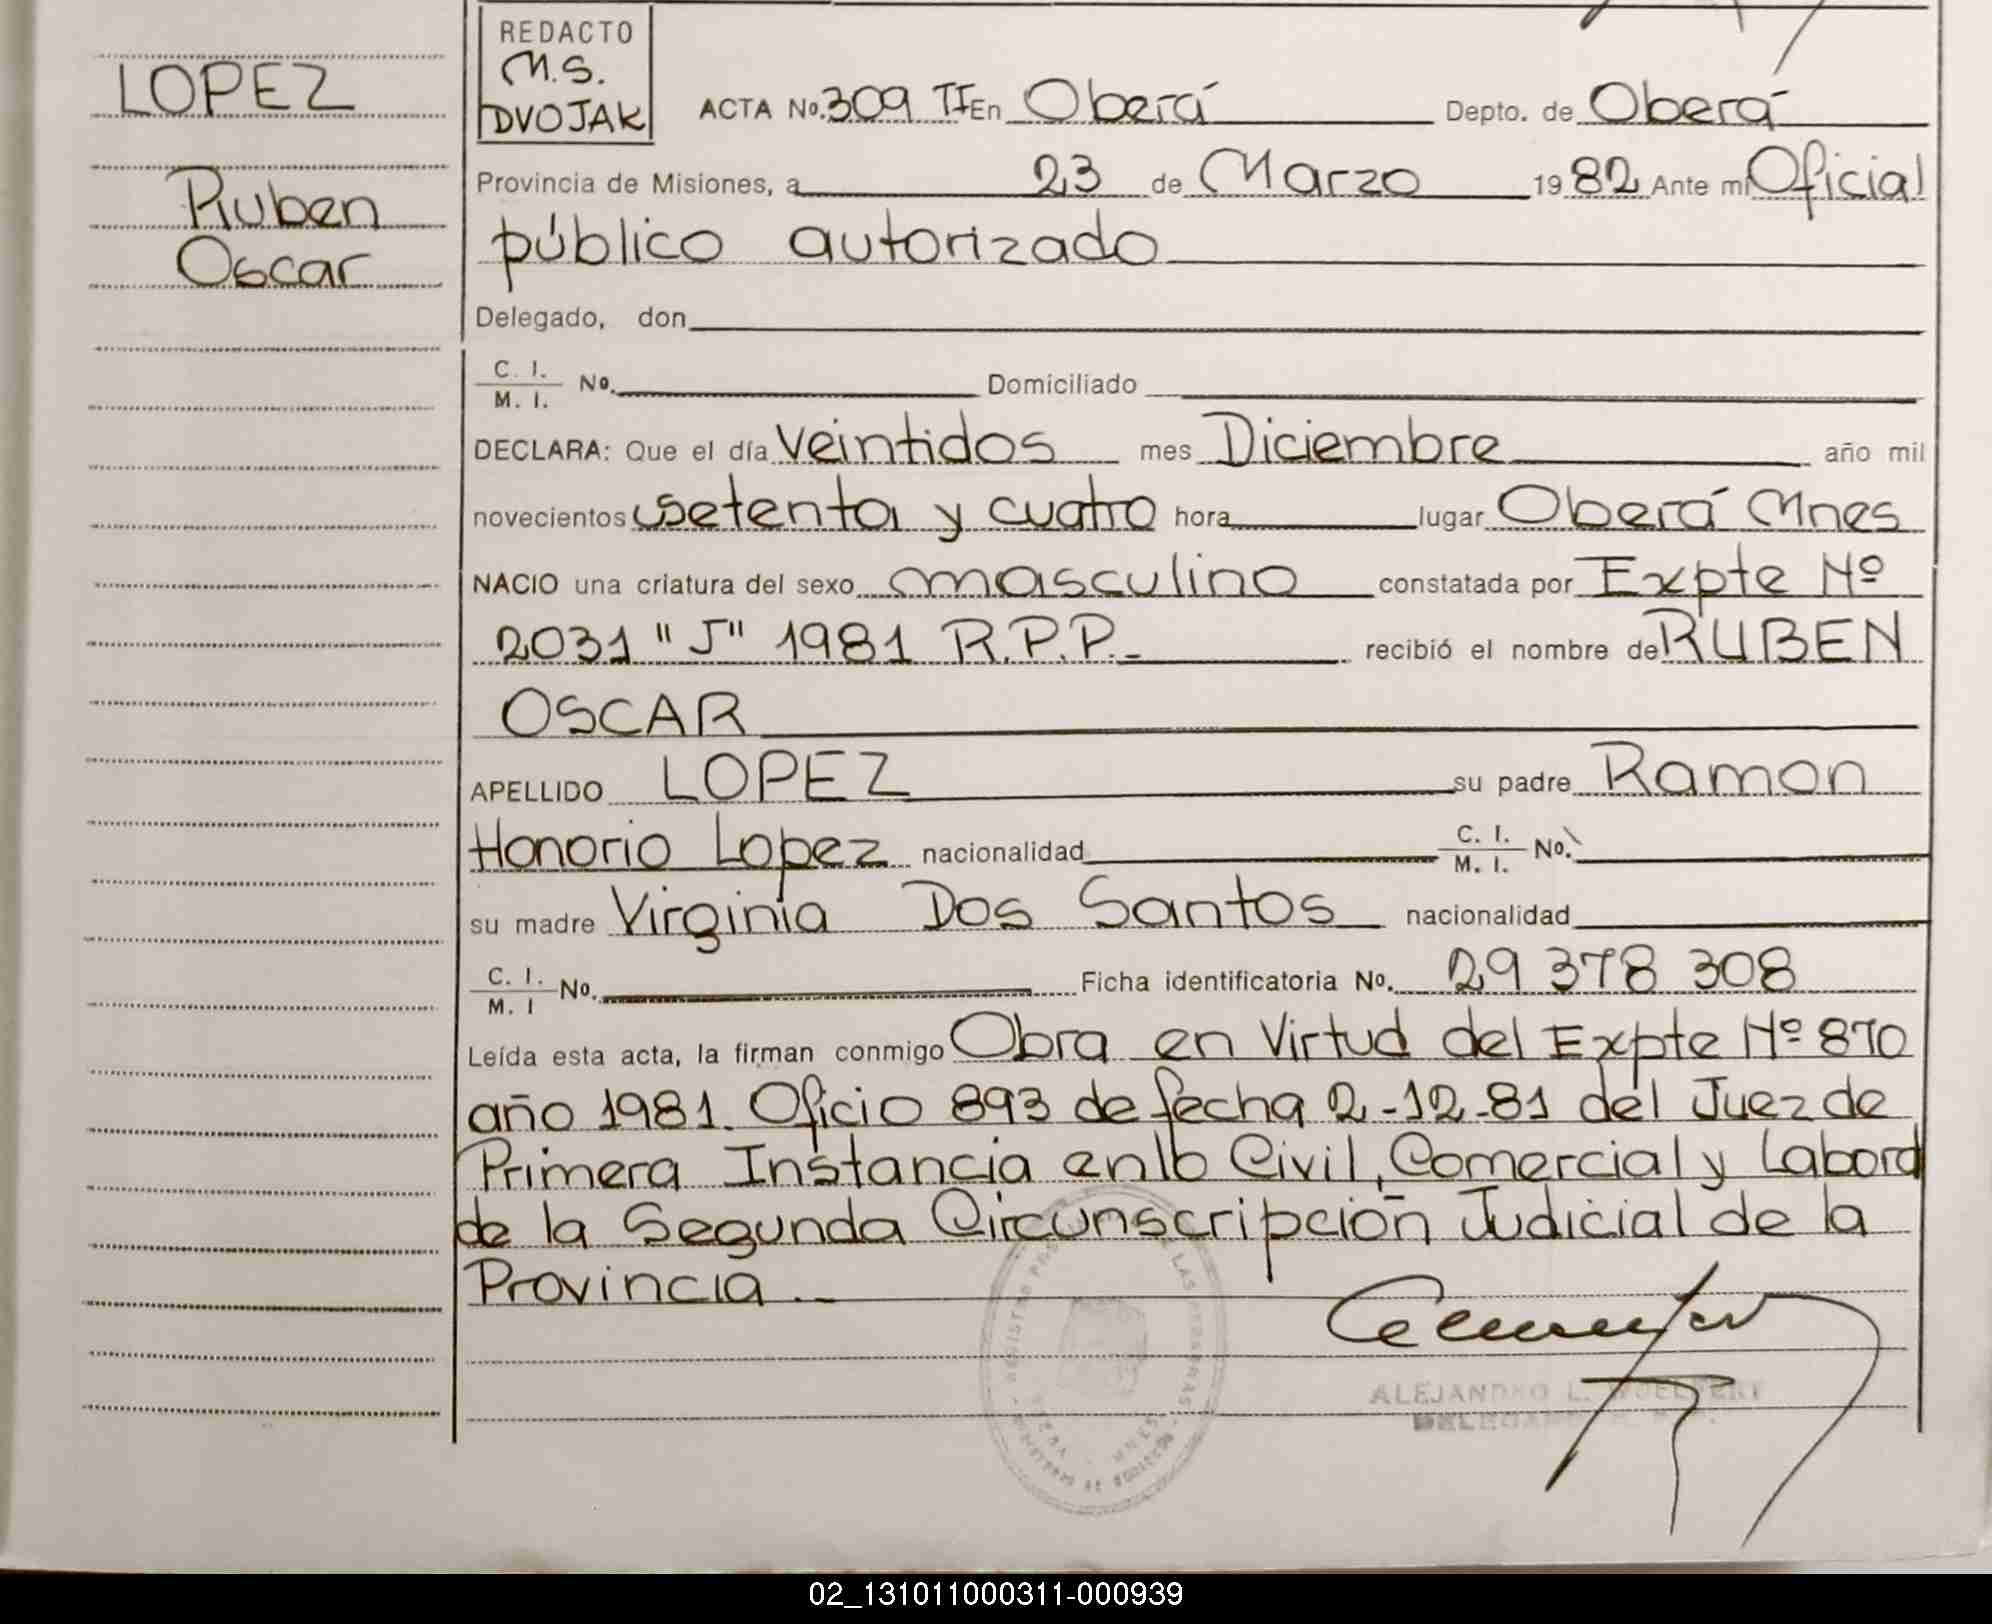 LOPEZ
Ruben
Oscar
REDACTO
M.S.
DVOJAK
ACTA No. 309 TI En Oberá Depto. de Oberá
Provincia de Misiones, a 23 de Marzo 1982 Ante mi Oficial
público autorizado
Delegado, don
C. I. / M. I. No. Domiciliado
DECLARA: Que el día Veintidos mes Diciembre año mil
novecientos setenta y cuatro hora lugar Oberá Mnes
NACIO una criatura del sexo masculino constatada por Expte Nº
2031 "J" 1981 R.P.P._ recibió el nombre de RUBEN
OSCAR
APELLIDO LOPEZ su padre Ramon
Honorio Lopez nacionalidad C. I. / M. I. No.
su madre Virginia Dos Santos nacionalidad
C. I. / M. I No. Ficha identificatoria No. 29 378 308
Leída esta acta, la firman conmigo Obra en Virtud del Expte Nº 870
año 1981. Oficio 893 de fecha 2-12-81 del Juez de
Primera Instancia en lo Civil, Comercial y Laboral
de la Segunda Circunscripción Judicial de la
Provincia._
ALEJANDRO L.
02_131011000311-000939